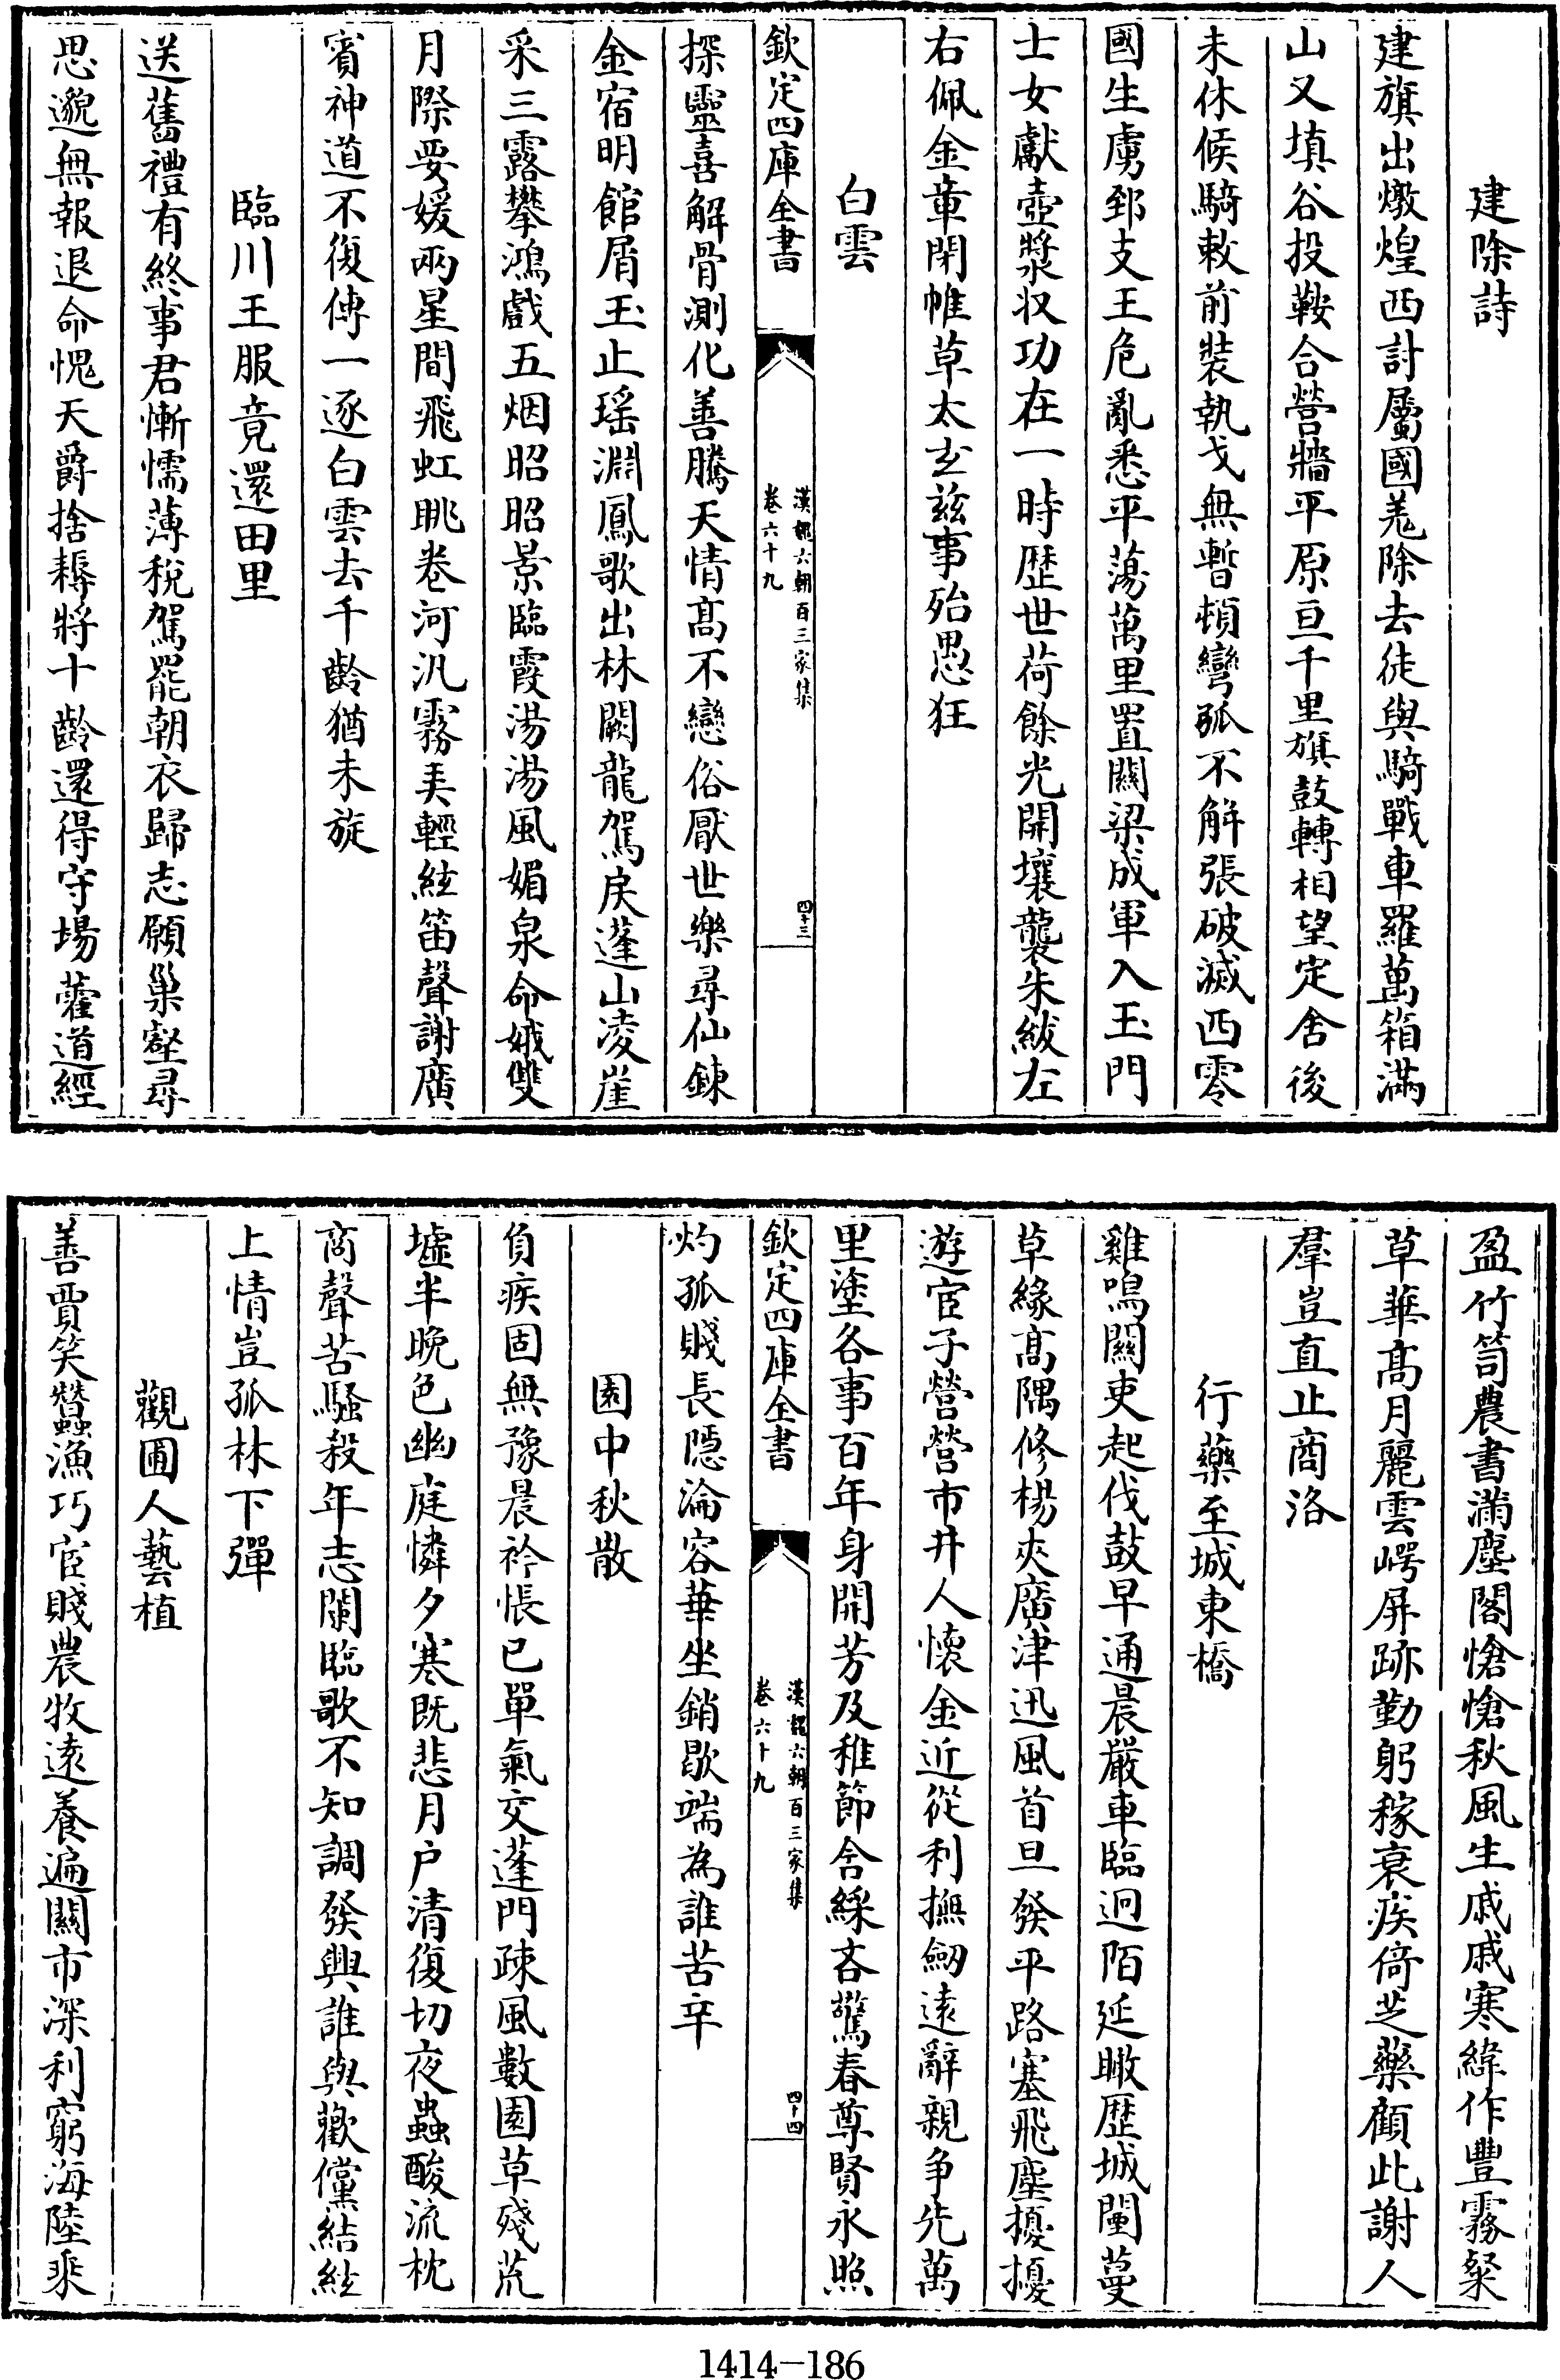 建除詩
建旗出燉煌西討屬國羌除去徒與騎戰車羅萬箱滿
山又填谷投鞍合營牆平原亘千里旗鼓轉相望定舍後
未休候騎敕前裝執戈無暫頓彎弧不解張破滅西零
國生虜郅支王危亂悉平蕩萬里置關梁成軍入玉門
士女獻壺漿收功在一時歷世荷餘光開壤襲朱紱左
右佩金章閉帷草太玄兹事殆愚狂
白雲
欽定四庫全書
漢魏六朝百三家集
卷六十九
四十三
探靈喜解骨測化善騰天情髙不戀俗厭世樂尋仙鍊
金宿明館屑玉止瑤淵鳳歌出林闕龍駕戾蓬山凌崖
采三露攀鴻戲五烟昭昭景臨霞湯湯風媚泉命娥雙
月際要媛兩星間飛虹眺卷河汎霧弄輕絃笛聲謝廣
賓神道不復傳一逐白雲去千齡猶未旋
臨川王服竟還田里
送舊禮有終事君慚懦薄稅駕罷朝衣歸志願巢壑尋
思邈無報退命愧天爵捨耨將十齡還得守場藿道經
盈竹笥農書滿塵閣愴愴秋風生戚戚寒緯作豐霧粲
草華髙月麗雲崿屏跡勤躬稼衰疾倚芝藥顧此謝人
羣豈直止商洛
行藥至城東橋
雞鳴關吏起伐鼓早通晨嚴車臨迥陌延瞰歷城闉蔓
草緣髙隅修楊夾廣津迅風首旦發平路塞飛塵擾擾
遊宦子營營市井人懷金近從利撫劒遠辭親爭先萬
里塗各事百年身開芳及稚節含綵吝驚春尊賢永照
欽定四庫全書
漢魏六朝百三家集
卷六十九
四十四
灼孤賤長隱淪容華坐銷歇端為誰苦辛
園中秋散
負疾固無豫晨衿悵已單氣交蓬門疎風數園草殘荒
墟半晚色幽庭憐夕寒既悲月户清復切夜蟲酸流枕
商聲苦騷殺年志闌臨歌不知調發興誰與歡儻結絃
上情豈孤林下彈
觀圃人藝植
善賈笑蠶漁巧宦賤農牧遠養遍關市深利窮海陸乘
1414-186